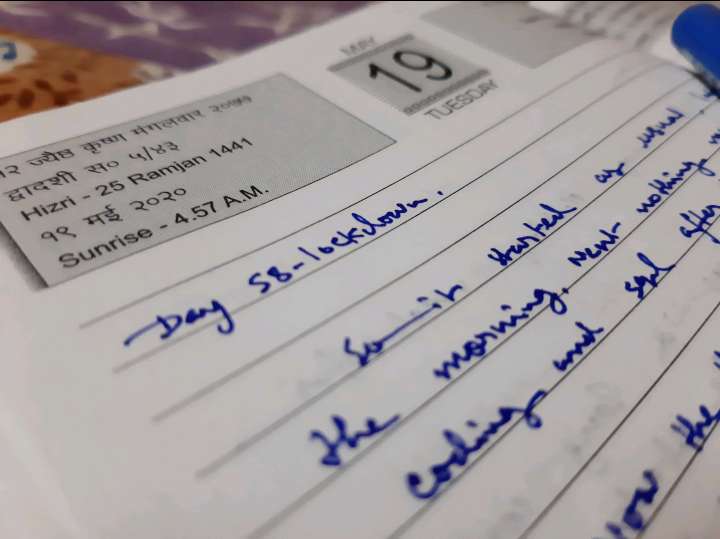 १२ ज्यैष्ठ कृष्ण मंगलवार २०७७
द्वादशी स० ५/४३
Hizri - 25 Ramjan 1441
१९ मई २०२०
Sunrise - 4.57 A.M.
MAY
19
TUESDAY
Day 58 - lockdown.
So it started as usual
the morning. Next nothing
coding and sql after
Now the